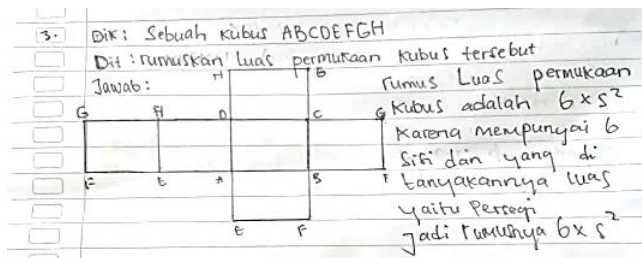 3. Dik : Sebuah kubus ABCDEFGH
Dit : rumuskan luas permukaan kubus tersebut
Jawab :
H G
G H D C G
F E A B F
E F
rumus Luas permukaan
kubus adalah 6 x s²
karena mempunyai 6
sisi dan yang di
tanyakannya luas
yaitu Persegi
Jadi rumusnya 6 x s²